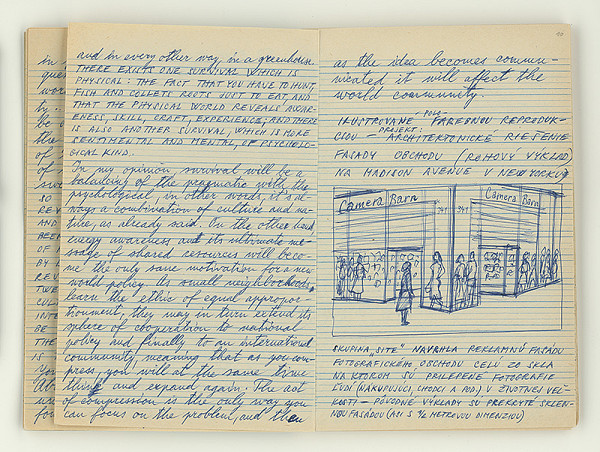 and in every other way, in a greenhouse.
THERE EXISTS ONE SURVIVAL WHICH IS
PHYSICAL: THE FACT THAT YOU HAVE TO HUNT,
FISH AND COLLETS ROOTS JUST TO EAT, AND
THAT THE PHYSICAL WORLD REVEALS AWAR-
ENESS, SKILL, CRAFT, EXPERIENCE; AND THERE
IS ALSO ANOTHER SURVIVAL, WHICH IS MORE
SENTIMENTAL AND MENTAL, OF PSYCHOLO-
GICAL KIND.
In my opinion survival will be a
balancing of the pragmatic with the
psychological, in other words, it's al-
ways a combination of culture and na-
ture, as already said. On the other hand
energy awareness and its ultimate me-
ssage of shared resources will beco-
me the only sane motivation for a new
world policy. As small neighborhoods,
learn the ethic of equal appropor-
tionment, they may in turn extend its
sphere of cooperation to national
policy and finally to an international
community, meaning that as you com-
press, you will at the same time
things and expand again. The act
of compression is the only way you
can focus on the problem, and then
as the idea becomes commu-
nicated it will affect the
world community.
ILUSTROVANÉ FAREBNOU REPRODUK-
CIOU – PROJEKT: ARCHITEKTONICKÉ RIEŠENIE
FASÁDY OBCHODU (ROHOVÝ VÝKLAD)
NA MADISON AVENUE V NEW YORKU
Camera Barn
341
341
Camera Barn
SKUPINA „SITE" NAVRHLA REKLAMNÚ FASÁDU
FOTOGRAFICKÉHO OBCHODU CELÚ ZO SKLA
NA KTOROM SÚ PRILEPENÉ FOTOGRAFIE
ĽUDÍ (NAKUPUJÚCI, CHODCI A POD.) V ŽIVOTNEJ VEĽ-
KOSTI – PÔVODNÉ VÝKLADY SÚ PREKRYTÉ SKLEN-
NOU FASÁDOU (ASI S ½ METROVOU DIMENZIOU)